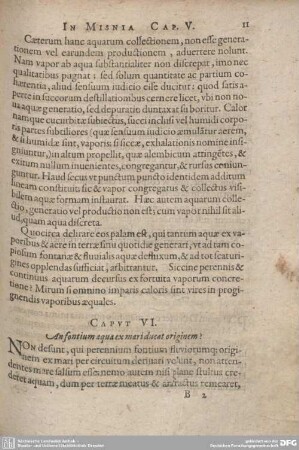 IN MISNIA CAP. V. 11
Cæterum hanc aquarum collectionem, non esse genera-
tionem vel earundem productionem, advertere nolunt.
Nam vapor ab aqua substantialiter non discrepat, imo nec
qualitatibus pugnat: sed solum quantitate ac partium co-
hærentia, aliud sensuum iudicio esse ducitur; quod satis a-
perte in succorum destillationibus cernere licet, ubi non no-
va aquæ generatio, sed depuratio duntaxat is boritur. Calor
namque cucurbitæ subiectus, succi inclusi vel humidi corpo-
ris partes subtiliores (quæ sensuum iudicio æmulãtur aerem,
& si humidæ sint, vaporis: si siccæ, exhalationis nomine insi-
gniuntur,) in altum propellit, quæ alembicum attingẽtes, &
exitum nullum invenientes, congregantur, & rursus coniun-
guntur. Haud secus vt punctum puncto identidem additum
lineam constituit; sic & vapor congregatus & collectus visi-
bilem aquæ formam instaurat. Hæc autem aquarum colle-
ctio, generatio vel productio non est; cum vapor nihil sit ali-
ud, quam aqua discreta.
Quocirca delirare eos palam est, qui tantum aquæ ex va-
poribus & aere in terræ sinu quotidie generari, vt ad tam co-
piosum fontanæ & fluvialis aquæ defluxum, & ad tot scaturi-
gines opplendas sufficiat, arbitrantur. Siccine perennis &
continuus aquarum decursus ex fortuita vaporum concre-
tione? Mirum si omnino imparis caloris sint vires in progi-
gnendis vaporibus æquales.
CAPVT VI.
An fontium aqua ex mari ducat originem?
NON desunt, qui perennium fontium fluviorumq; origi-
nem ex mari per circuitum derivari volunt, non atten-
dentes mare salsum esse: nemo autem nisi plane stultus cre-
deret aquam, dum per terræ meatus & anfractus remearet,
B 2